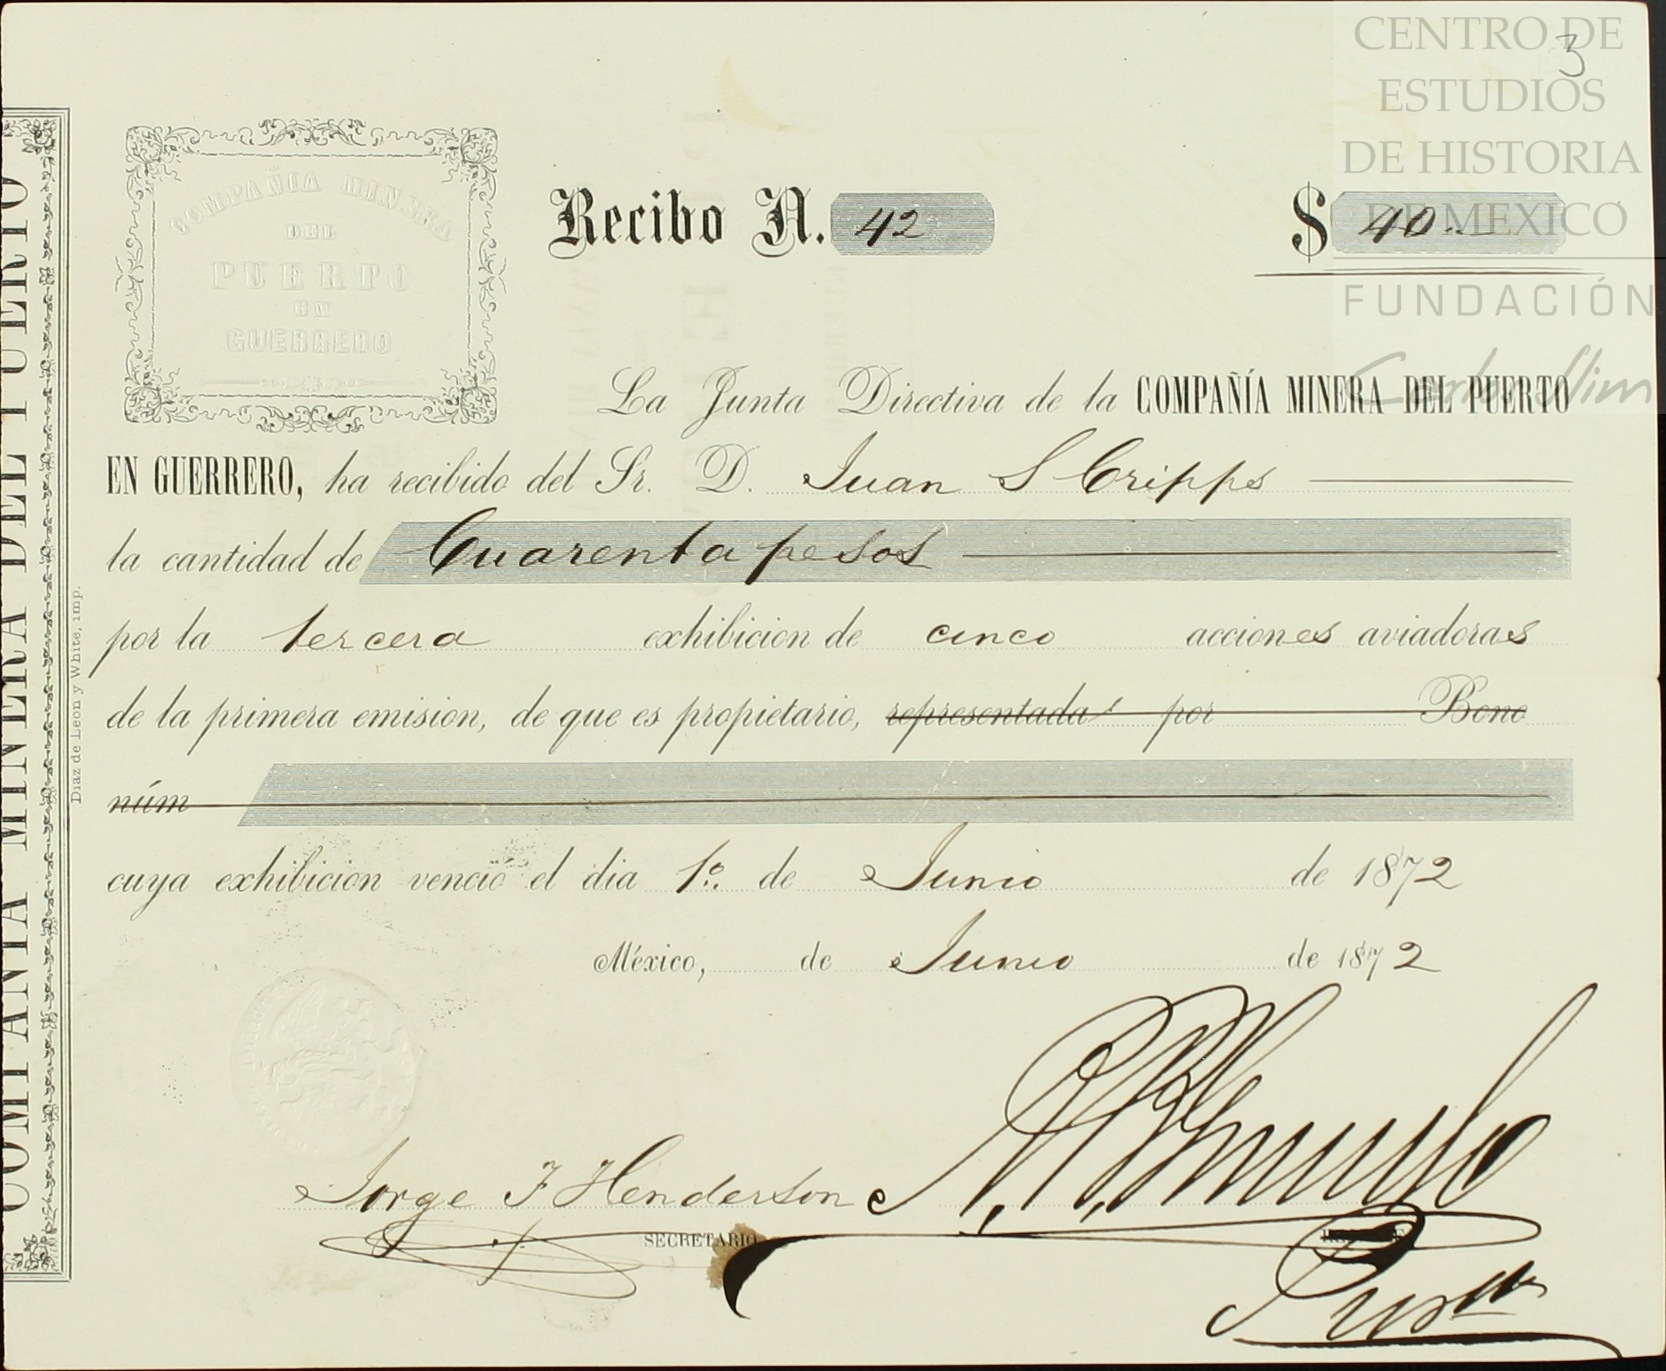 CENTRO DE
ESTUDIOS
DE HISTORIA
DE MEXICO
FUNDACIÓN
Carlos Slim
3
COMPAÑIA MINERA DEL PUERTO
Diaz de Leon y White, imp.
COMPAÑIA MINERA
DEL
PUERTO
EN
GUERRERO
Recibo N. 42 $ 40..
La Junta Directiva de la COMPAÑÍA MINERA DEL PUERTO
EN GUERRERO, ha recibido del Sr. D. Juan S Cripps
la cantidad de Cuarenta pesos
por la tercera exhibicion de cinco acciones aviadoras
de la primera emision, de que es propietario, representada por Bono
núm
cuya exhibicion venció el dia 1º de Junio de 1872
México, de Junio de 1872
Jorge F Henderson
SECRETARIO